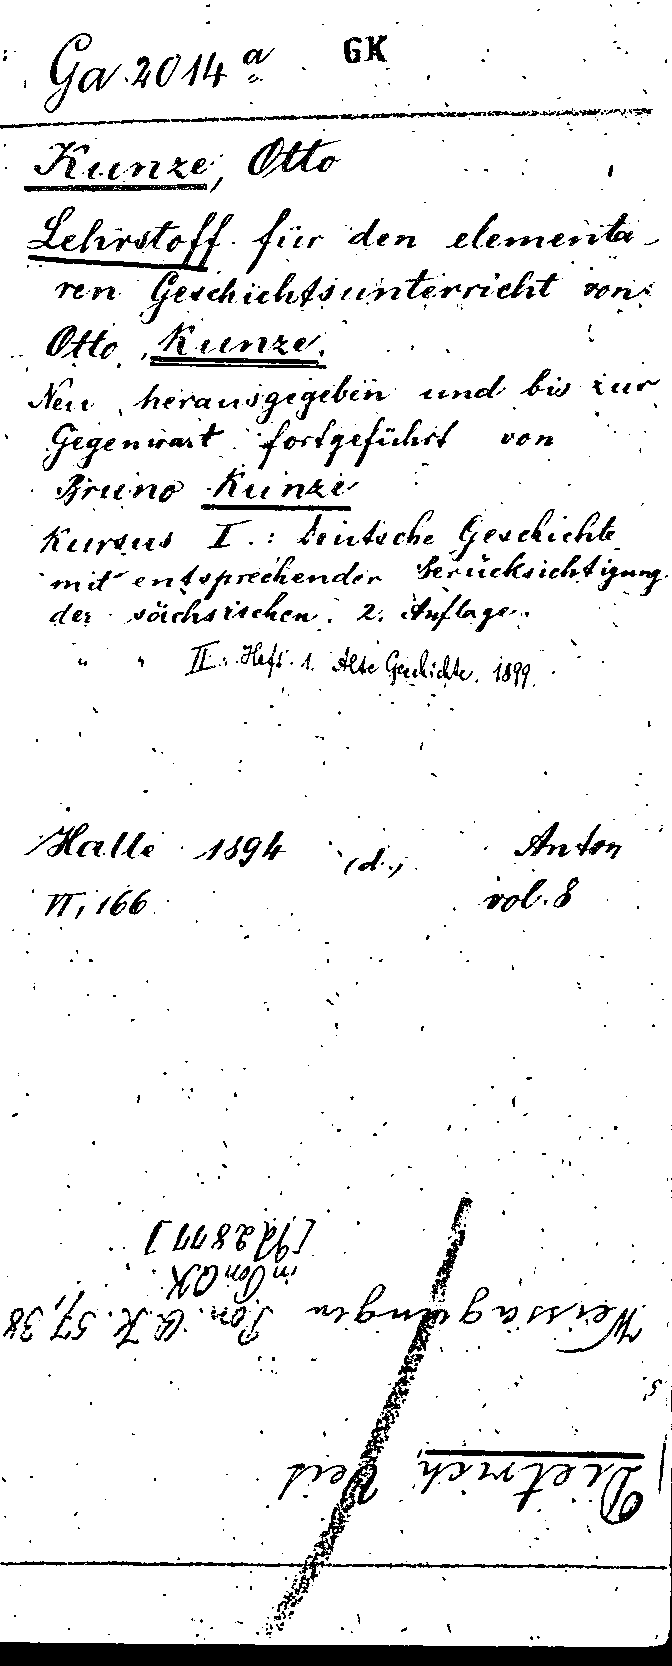 Ga 2014 a GK
Kunze, Otto
Lehrstoff für den elementa-
ren Geschichtsunterricht von
Otto Kunze.
Neu herausgegeben und bis zur
Gegenwart fortgeführt von
Bruno Kunze
Kursus I.: Deutsche Geschichte
mit entsprechender Berücksichtigung
der sächsischen. 2. Auflage.
" " II. Heft. 1. Alte Geschichte. 1899.
Halle 1894 (d.) Anton
VI, 166 vol. 8
Dietrich, Veit
s.
Weissagungen Pon. QK. 57, 38
in Pon QK
[Qd 2877]